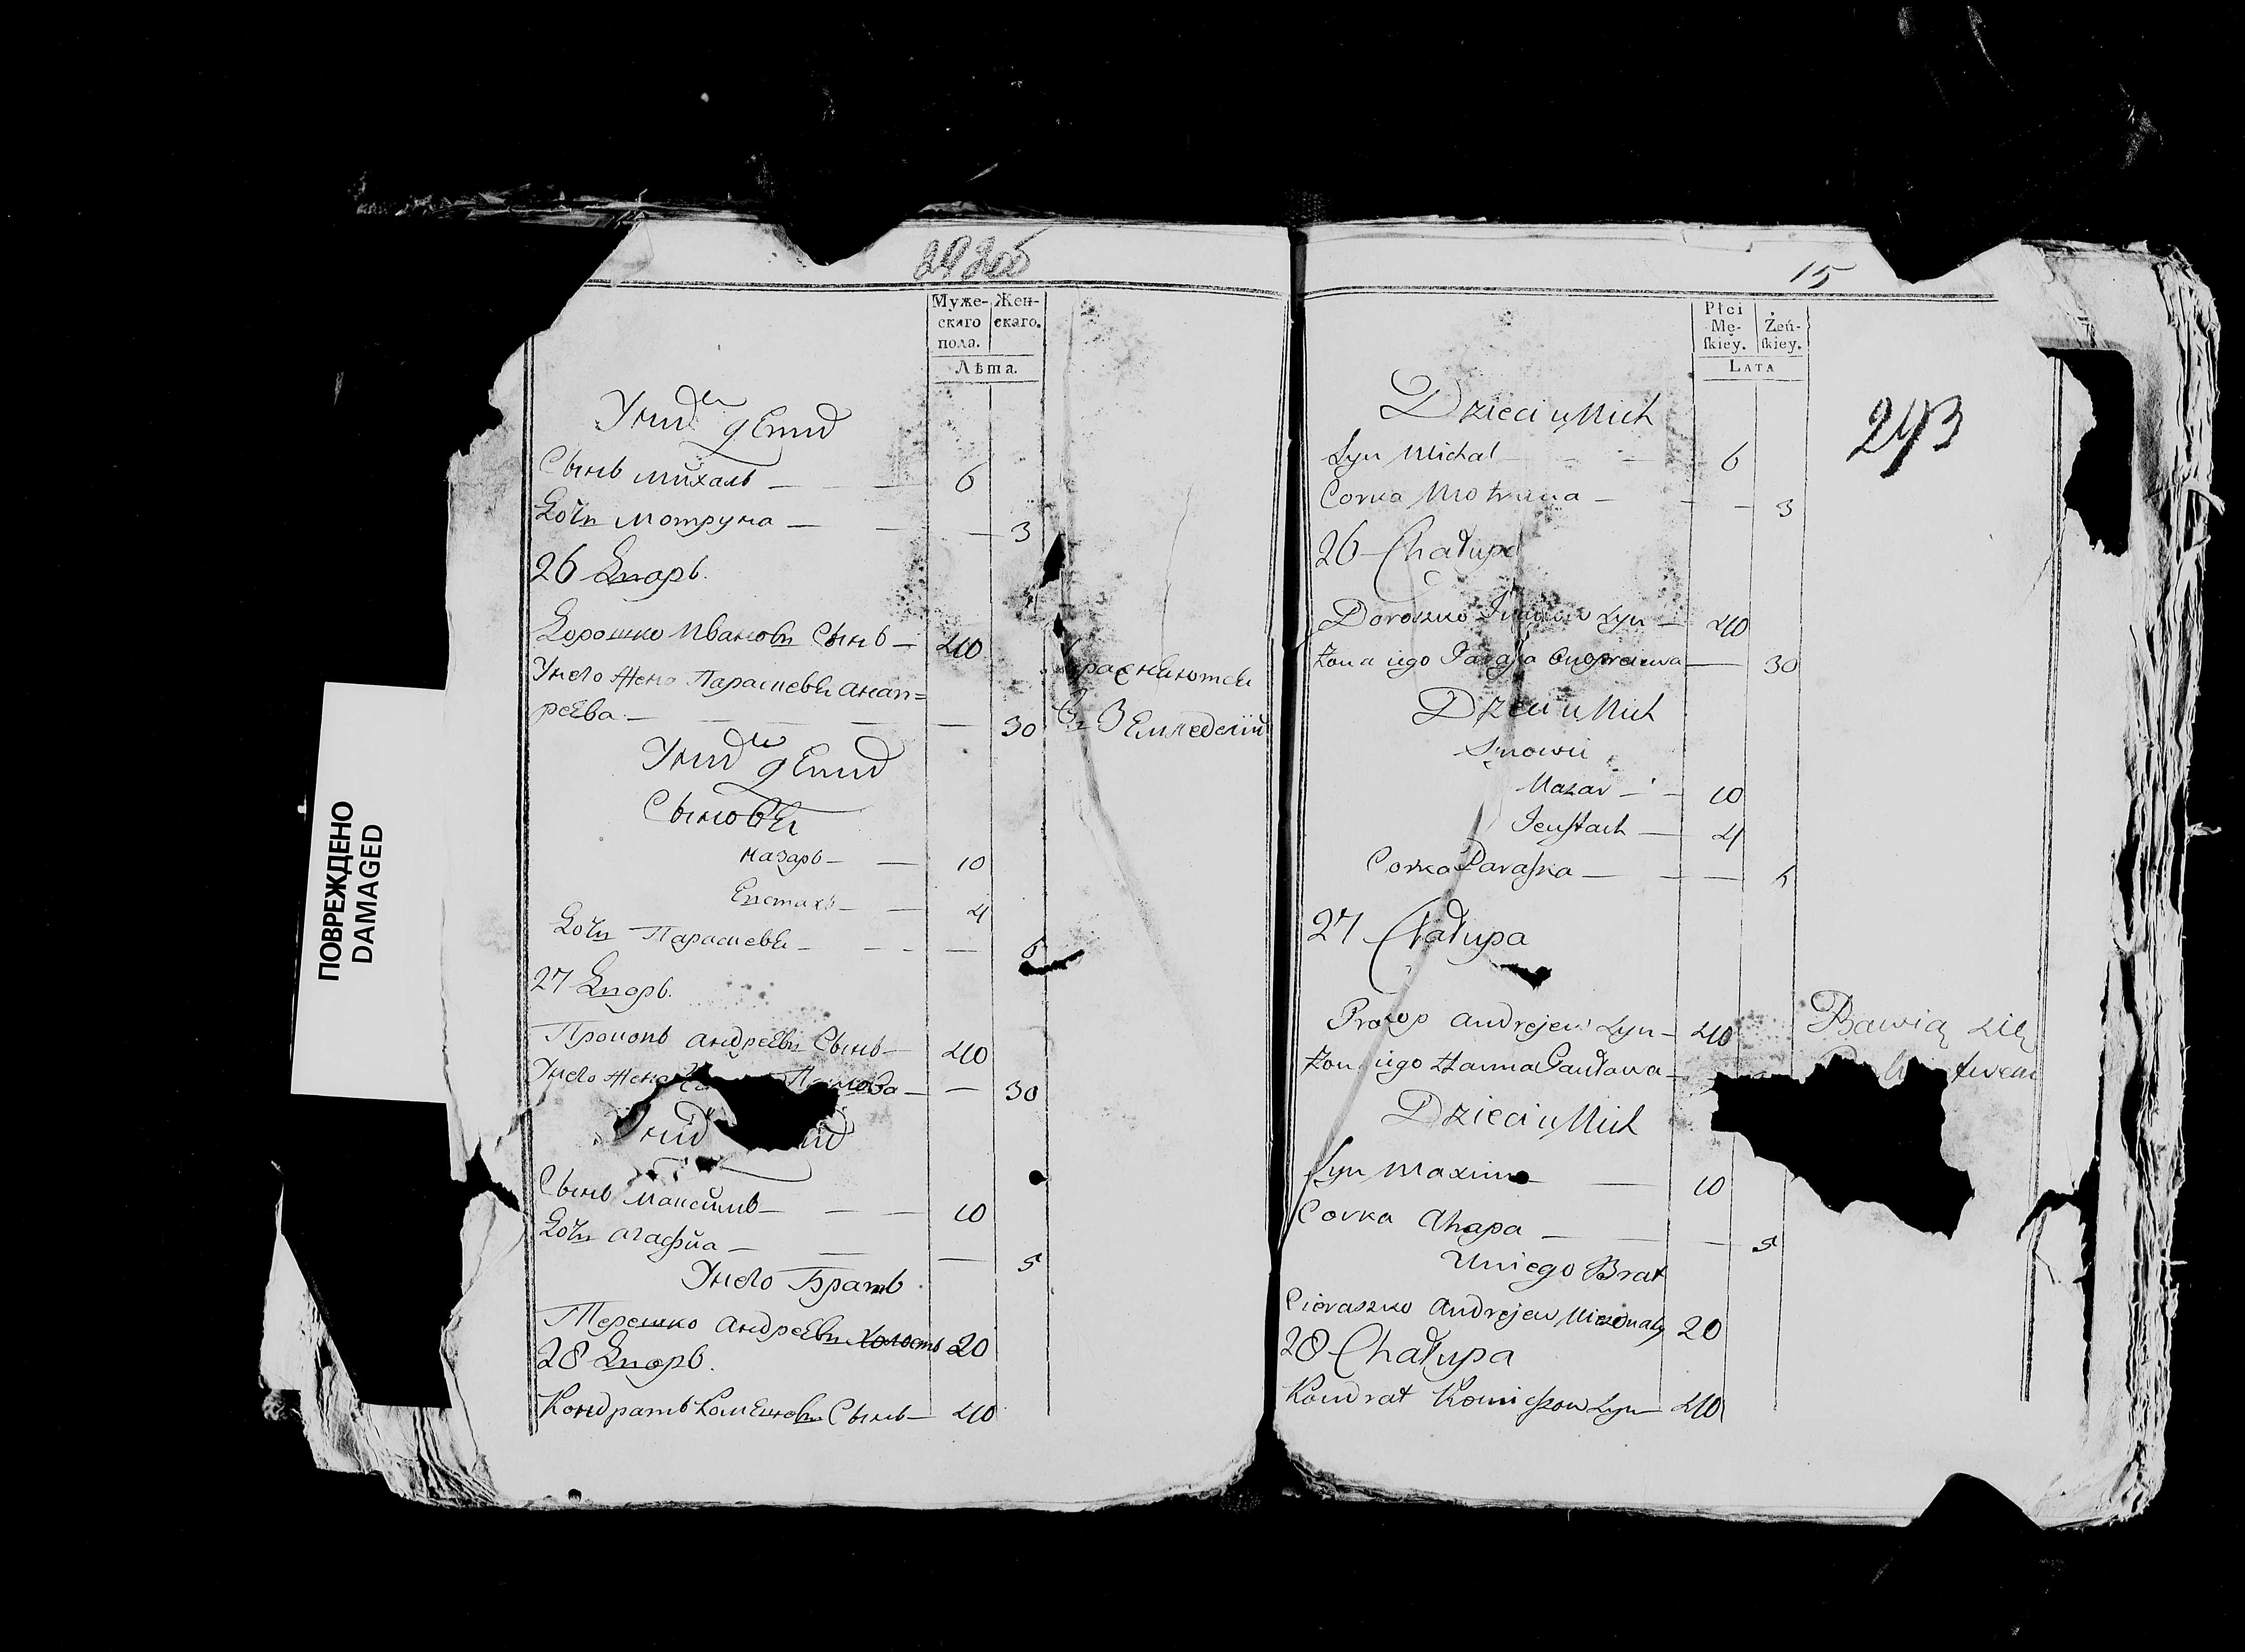 ПОВРЕЖДЕНО
DAMAGED
Муже- Жен-
скаго скаго.
пола.
Лѣта.
Унид дети
Сынъ Михалъ — — 6
Дочь Мотруна — — — 3
26 Дворъ.
Дорошко Ивановъ Сынъ — 40
Унего Жена Параскевия
реева — — — — 30
Унид дети
Сыновья
Назаръ — — 10
Евстахъ — — 4
Дочь Параскевия — — — — 6
27 Дворъ.
Прокопъ Андреевъ Сынъ — 40
Унего Жена — — 30
Унид
Сынъ Максимъ — — — 10
Дочь Агафiя — — — 5
Унего Братъ
Терешко Андреевъ Холостъ 20
28 Дворъ.
Кондратъ Сынъ — 40
Земледелiй
15
Płci
Mę- Żeń-
ſkiey. ſkiey.
LATA
243
Dzieci u Nich
Syn Michał — — 6
Corka Motruna — — — 3
26 Chałupa
Doroszko Iwanow Syn — 40
Żona iego Paraſka — 30
Dzieci u Nich
Synowie
Nazar — — 10
Jeuſtach — 4
Corka Paraſka — — —
27 Chałupa
Prokop Andrejew Syn — 40
Bawią się
Żona iego Hanna Pawłowa —
Dzieci u Nich
Syn Maxim — — 10
Corka Ahapa — — 5
U niego Brat
Cieraszko Andrejew Nieżonaty 20
28 Chałupa
Kondrat Syn — 40